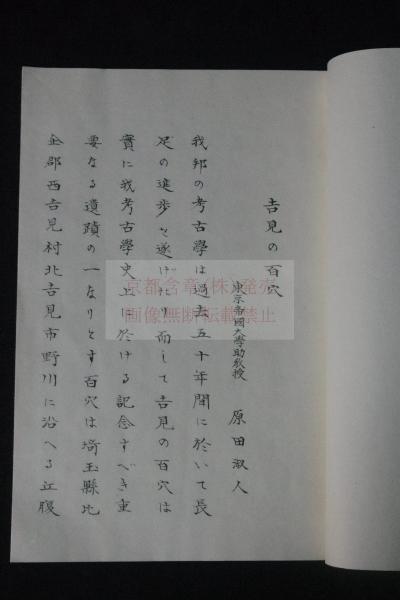 吉見の百穴
東京帝國大學助教授 原田淑人
我邦の考古學は過去五十年間に於いて長
足の進歩を遂げたり而して吉見の百穴は
實に我考古學史上に於ける記念すべき重
要なる遺蹟の一なりとす百穴は埼玉縣比
企郡西吉見村北吉見市野川に沿へる丘腹
京都含章(株)発売
画像無断転載禁止